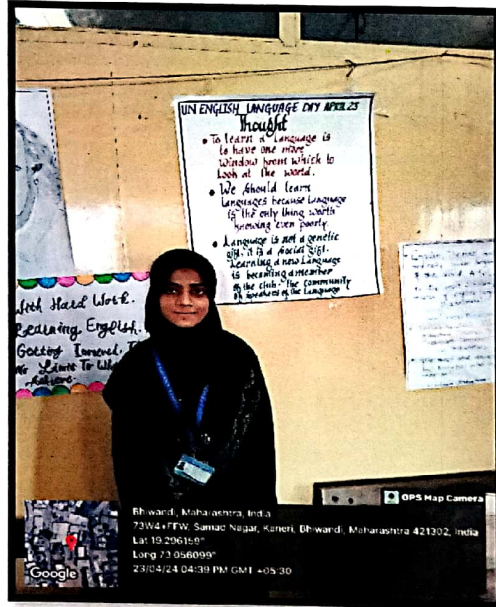 UN ENGLISH LANGUAGE DAY APRIL 23
Thought
• To learn a Language is
to have one more
window from which to
Look at the world.
• We should learn
Languages because Language
is the only thing worth
knowing even poorly.
• Language is not a genetic
gift, it is a social gift.
Learning a new Language
is becoming a member
of the club - the community
of speakers of the Language
With Hard Work.
Learning English.
Getting
No Limit To
Achieve
GPS Map Camera
Bhiwandi, Maharashtra, India
73W4+FFW, Samad Nagar, Kaneri, Bhiwandi, Maharashtra 421302, India
Lat 19.296159°
Long 73.056099°
23/04/24 04:39 PM GMT +05:30
Google